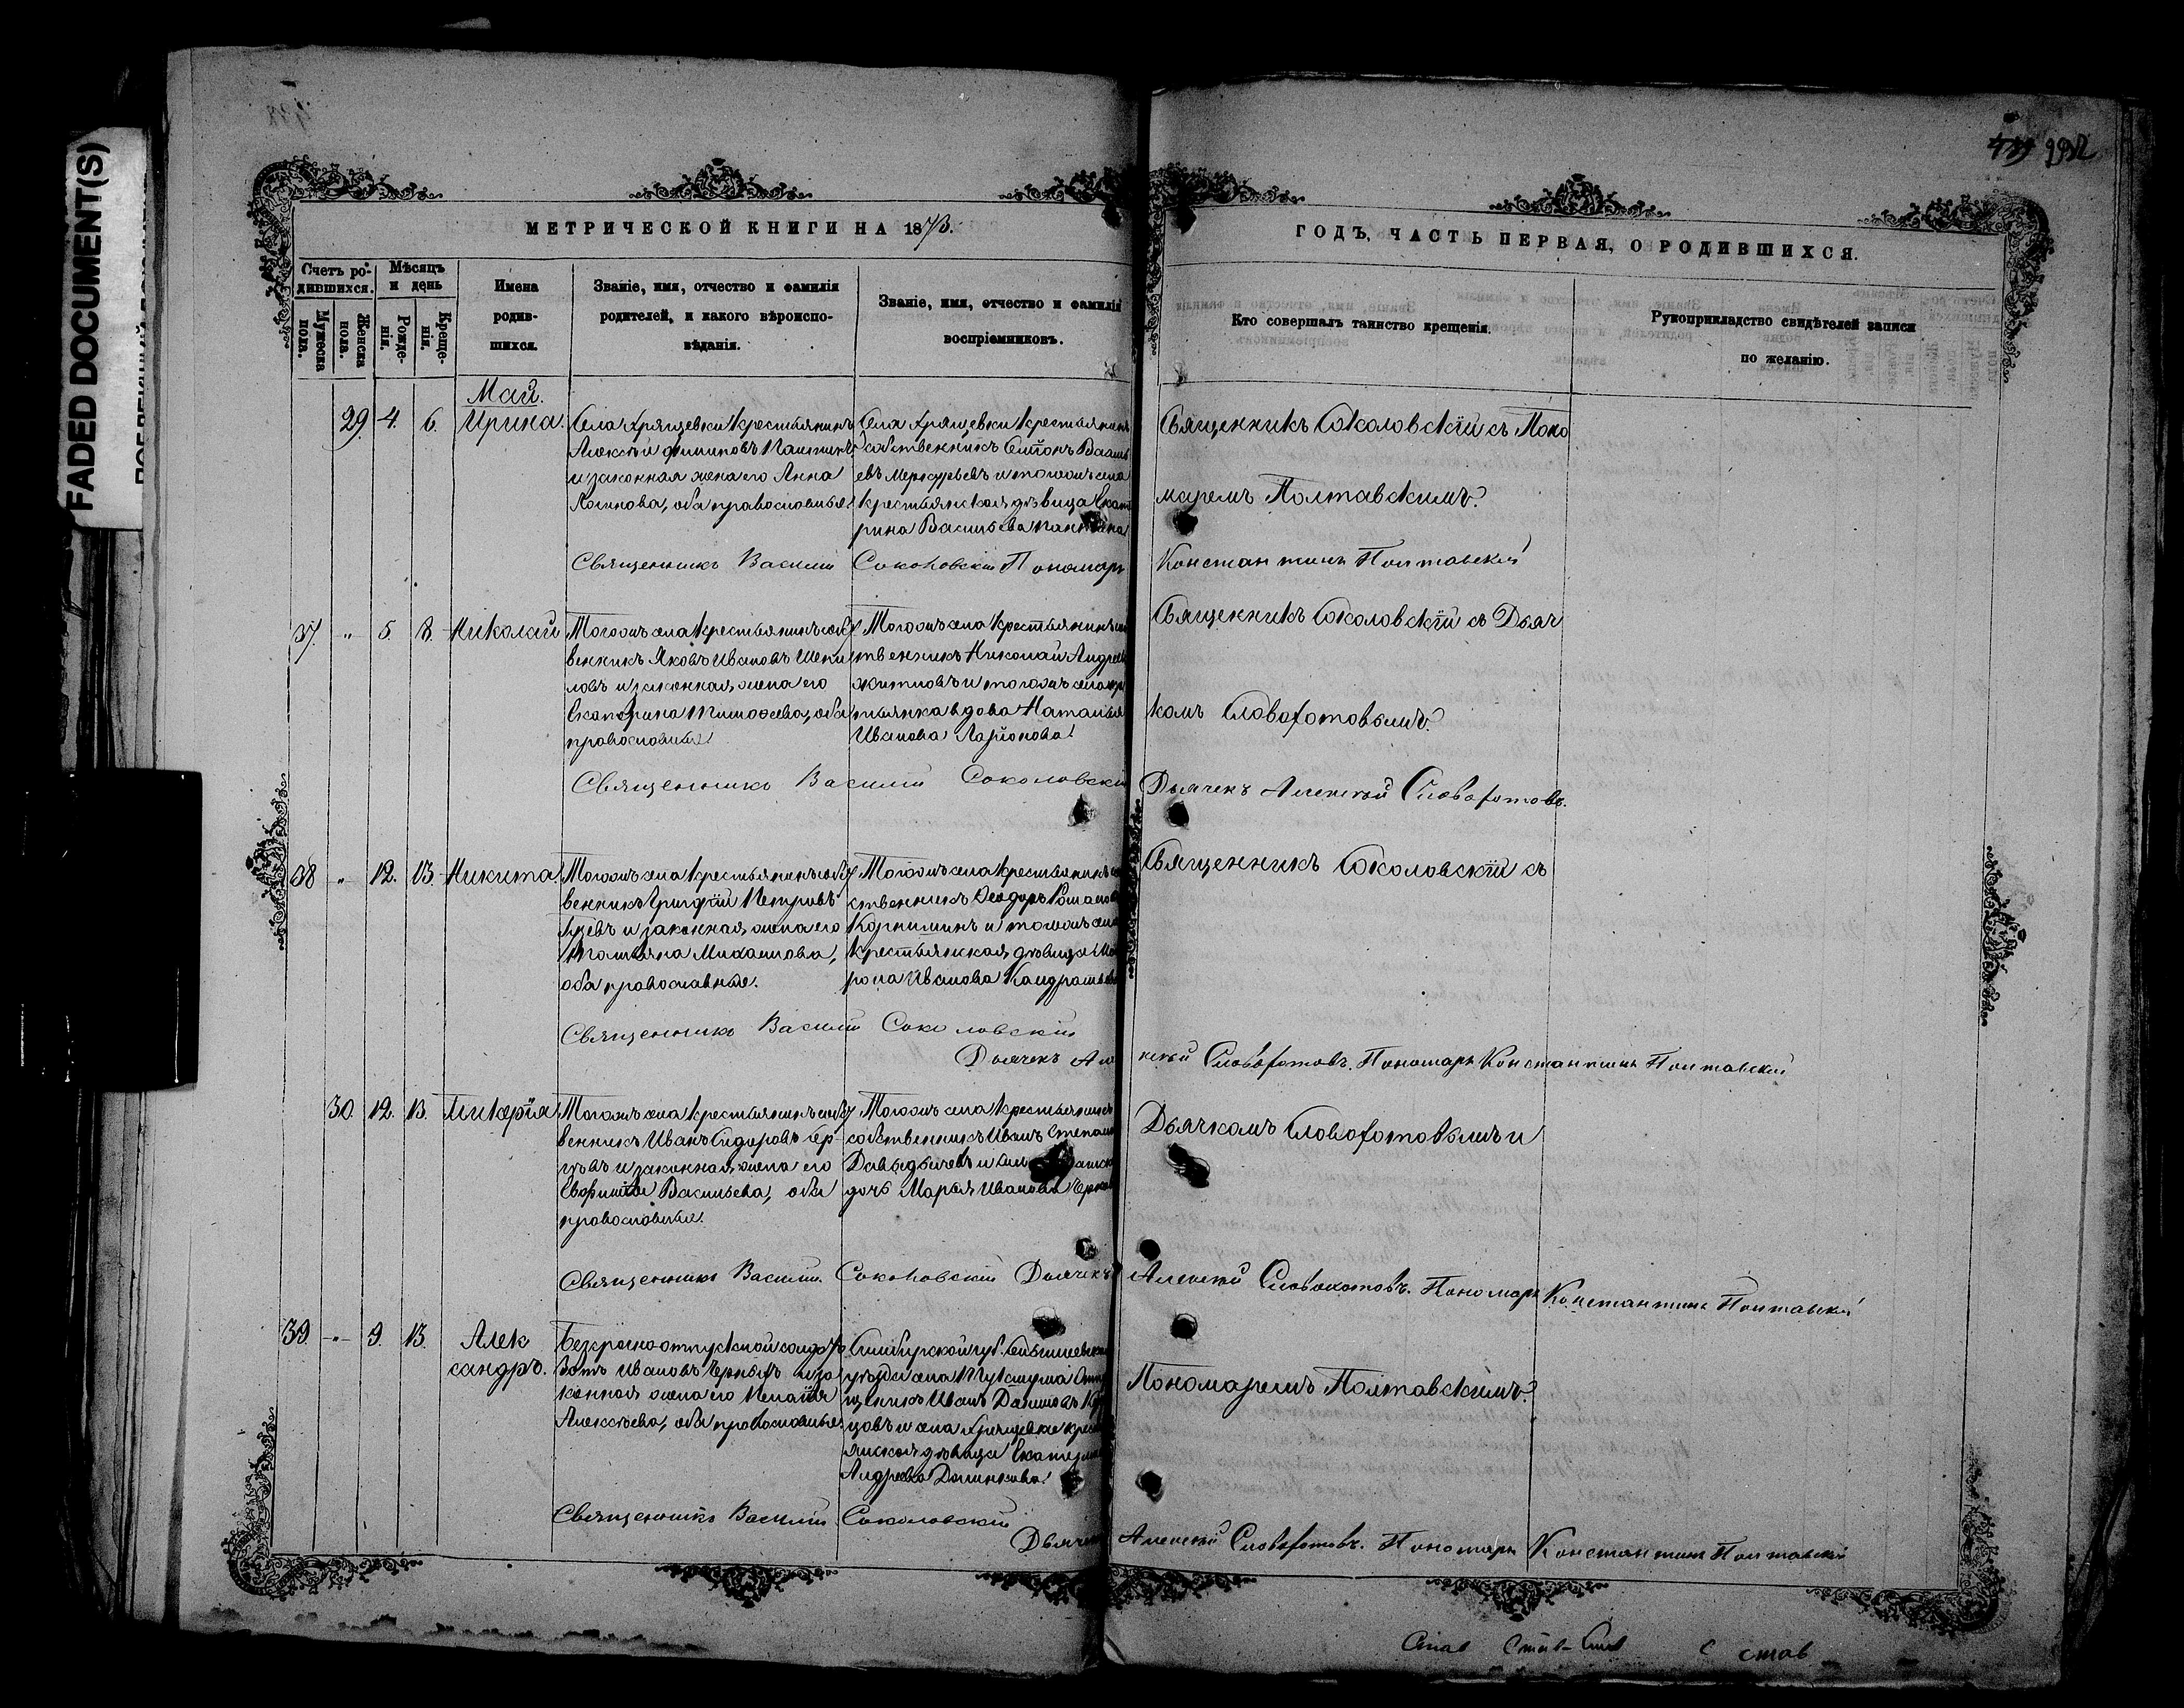 FADED DOCUMENT(S)
932
МЕТРИЧЕСКОЙ КНИГИ НА 1873.
ГОДЪ, ЧАСТЬ ПЕРВАЯ, О РОДИВШИХСЯ.
Счетъ ро-
дившихся.
Мужеска
пола.
Женска
пола.
Мѣсяцъ
и день
Рожде-
нія.
Креще-
нія.
Имена
родив-
шихся.
Званіе, имя, отчество и фамилія
родителей, и какого вѣроиспо-
вѣданія.
Званіе, имя, отчество и фамилія
воспріемниковъ.
Кто совершалъ таинство крещенія.
Рукоприкладство свидѣтелей записи
по желанію.
Май.
29. 4. 6. Ирина.
Села Хрящевки крестьянинъ
Алексѣй Филиповъ
и законная жена его Анна
Логинова, оба православные
Села Хрящевки крестьянинъ
собственникъ Семіонъ Василь
евъ Меркурьевъ и тогожъ села
крестьянская дѣвица Екате
рина Васильева
Священникъ Соколовскій съ Поно
маремъ Полтавскимъ.
Священникъ Василій Соколовскій Пономарь Константинъ Полтавскій
37. " 5. 8. Николай
Тогожъ села крестьянинъ собст
венникъ Яковъ Ивановъ Шепи
ловъ и законная жена его
Екатерина Тимофеева, оба
православные
Тогожъ села крестьянинъ соб
ственникъ Николай Андреевъ
Житловъ и тогожъ села крес
тьянка вдова Наталья
Иванова Ларіонова
Священникъ Соколовскій съ Дьяч
комъ Словохотовымъ.
Священникъ Василій Соколовскій Дьячекъ Алексѣй Словохотовъ.
38 " 12. 13. Никита.
Тогожъ села крестьянинъ собст
венникъ Григорій Петровъ
Гузевъ и законная жена его
Татьяна Михаилова,
оба православные.
Тогожъ села крестьянинъ соб
ственникъ Феодоръ Романовъ
Корнилинъ и тогожъ села
крестьянская дѣвица
Иванова
Священникъ Соколовскій съ
Священникъ Василій Соколовскій
Дьячекъ Алексѣй Словохотовъ. Пономарь Константинъ Полтавскій
30. 12. 13. Гликерія
Тогожъ села крестьянинъ собст
венникъ Иванъ Сидоровъ
и законная жена его
Васильева, оба
православные.
Тогожъ села крестьянинъ
собственникъ Иванъ Степановъ
Давыдычевъ и
дочь Марья Иванова
Дьячкомъ Словохотовымъ и
Священникъ Василій Соколовскій Дьячекъ Алексѣй Словохотовъ. Пономарь Константинъ Полтавскій
39. " 9. 13. Алек
сандръ.
Безсрочноотпускной солдатъ
Ивановъ и за
конная жена его Пелагія
Алексѣева, оба православные
Симбирской губ.
уѣзда села
Иванъ Даниловъ
и села Хрящевки крест
янская дѣвица Екатерина
Андреева
Пономаремъ Полтавскимъ.
Священникъ Василій Соколовскій
Дьячекъ Алексѣй Словохотовъ. Пономарь Константинъ Полтавскій